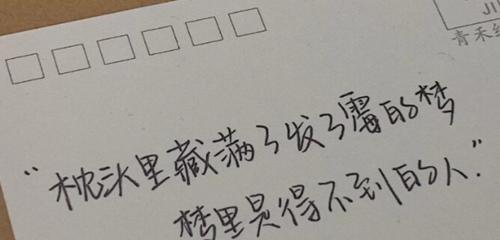 JI
青禾纟
“枕头里藏满了发了霉的梦
梦里是得不到的人.”